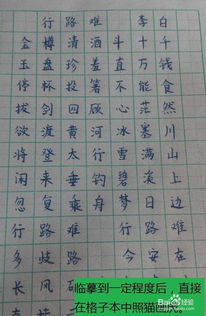 行路难 李白
金樽清酒斗十千
玉盘珍羞直万钱
停杯投箸不能食
拔剑四顾心茫然
欲渡黄河冰塞川
将登太行雪满山
闲来垂钓碧溪上
忽复乘舟梦日边
行路难 行路难
多歧路 今安在
长风破
临摹到一定程度后，直接
在格子本中照猫画虎。
Baidu经验